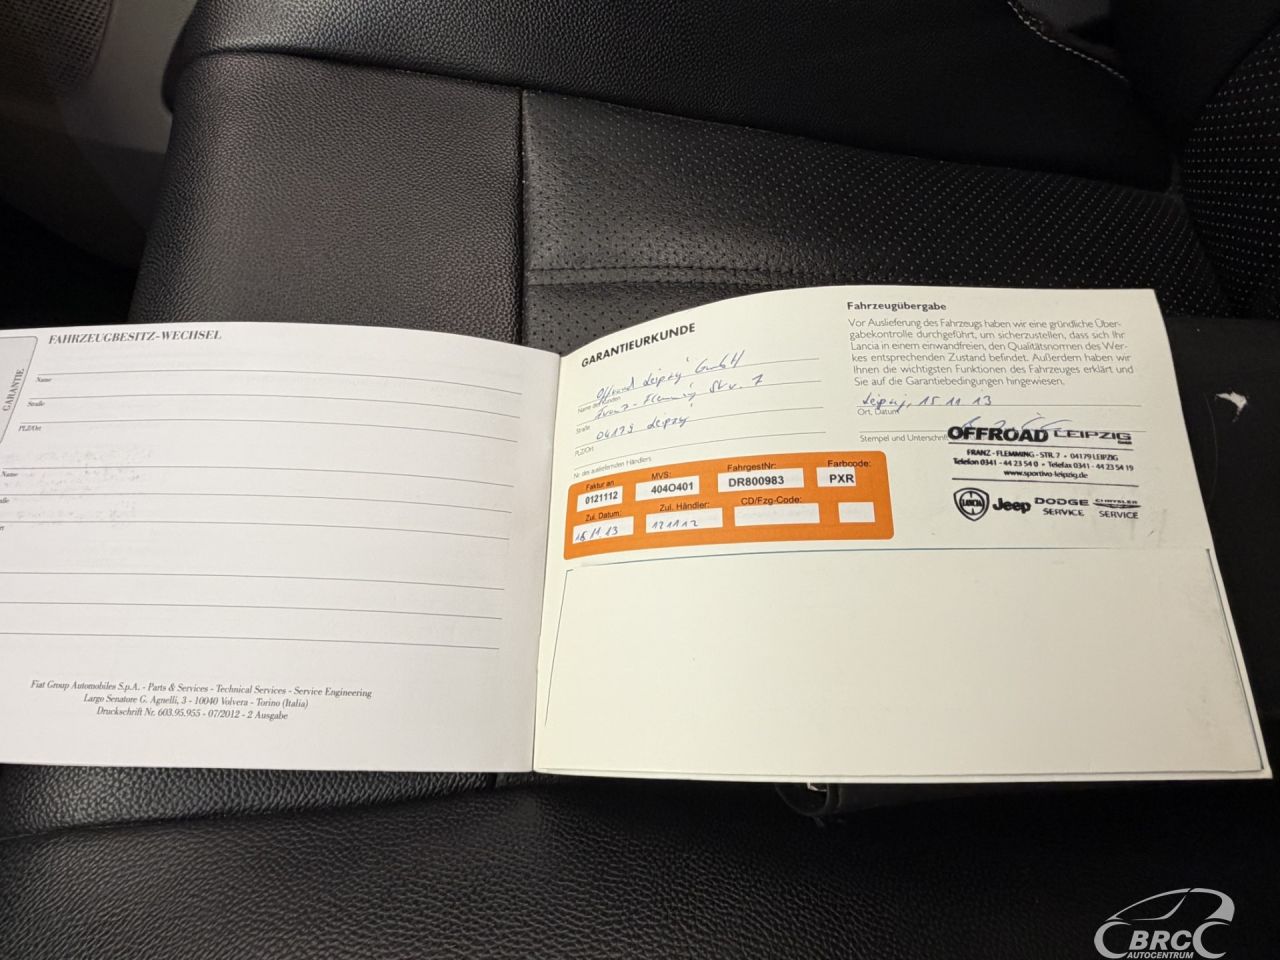 FAHRZEUGBESITZ-WECHSEL
GARANTIE
Name
Straße
PLZ/Ort
Name
Fiat Group Automobiles S.p.A. - Parts & Services - Technical Services - Service Engineering
Largo Senatore G. Agnelli, 3 - 10040 Volvera - Torino (Italia)
Druckschrift Nr. 603.95.955 - 07/2012 - 2 Ausgabe
GARANTIEURKUNDE
Offroad Leipzig GmbH
Name des Kunden
Franz-Flemming Str. 7
Straße
04179 Leipzig
PLZ/Ort
Nr. des ausliefernden Händlers
Faktur an
MVS:
FahrgestNr:
Farbcode:
0121112
404O401
DR800983
PXR
Zul. Datum:
Zul. Händler:
CD/Fzg-Code:
15 11 13
121112
Fahrzeugübergabe
Vor Auslieferung des Fahrzeugs haben wir eine gründliche Über-
gabekontrolle durchgeführt, um sicherzustellen, dass sich Ihr
Lancia in einem einwandfreien, den Qualitätsnormen des Wer-
kes entsprechenden Zustand befindet. Außerdem haben wir
Ihnen die wichtigsten Funktionen des Fahrzeuges erklärt und
Sie auf die Garantiebedingungen hingewiesen.
Leipzig, 15 11 13
Ort, Datum
Stempel und Unterschrift
OFFROAD LEIPZIG
FRANZ - FLEMMING - STR. 7 • 04179 LEIPZIG
Telefon 0341 - 44 23 54 0 • Telefax 0341 - 44 23 54 19
www.sportiva-leipzig.de
LANCIA Jeep DODGE SERVICE CHRYSLER SERVICE
BRC
AUTOCENTRUM